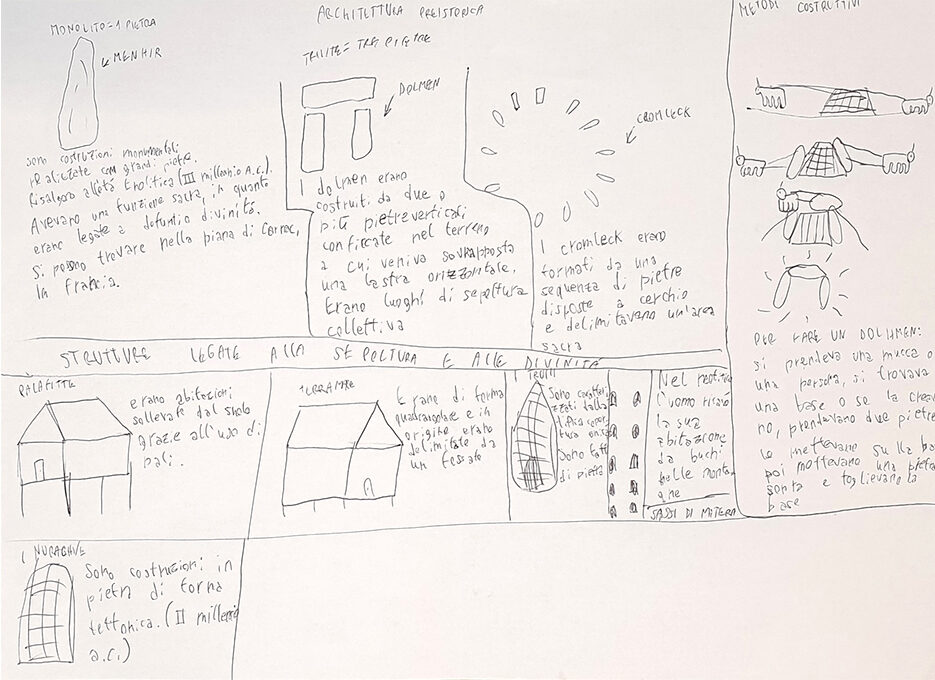 ARCHITETTURA PREISTORICA
MONOLITO=1 PIETRA
MENHIR
sono costruzioni monumentali
realizzate con grandi pietre.
Risalgono all'età Eneolitica (III millennio A.C.).
Avevano una funzione sacra, in quanto
erano legate a defunti o divinità.
Si possono trovare nella piana di Carnac,
in Francia.
TRILITE= TRE PIETRE
DOLMEN
I dolmen erano
costruiti da due o
più pietre verticali
conficcate nel terreno
a cui veniva sovrapposta
una lastra orizzontale.
Erano luoghi di sepoltura
collettiva
CROMLECK
I cromleck erano
formati da una
sequenza di pietre
disposte a cerchio
e delimitavano un'area
sacra
METODI COSTRUTTIVI
PER FARE UN DOLMEN:
si prendeva una mucca o
una persona, si trovava
una base o se la crea
no, prendevano due pietre
le mettevano su la ba
poi mettevano una pietra
sopra e toglievano la
base
STRUTTURE LEGATE ALLA SEPOLTURA E ALLE DIVINITÀ
PALAFITTE
erano abitazioni
sollevate dal suolo
grazie all'uso di
pali.
TERRAMARE
Erano di forma
quadrangolare e in
origine erano
delimitate da
un fossato
I TRULLI
Sono caratteri
zzati dalla
tipica coper
tura
Sono fatti
di pietra
Nel
l'uomo
la sua
abitazione
da buchi
nelle monta
gne
SASSI DI MATERA
I NURAGHVE
Sono costruzioni in
pietra di forma
tettonica. (II millennio
a.C.)